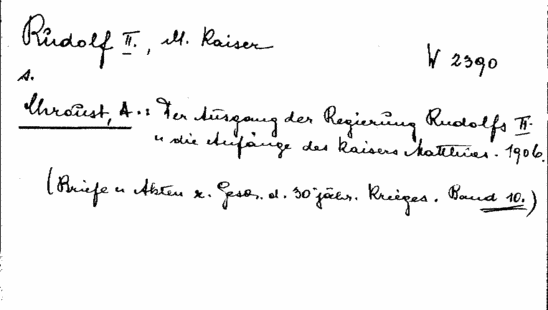 Rudolf II., M. Kaiser
W 2390
s.
Chroust, A.: Der Ausgang der Regierung Rudolfs II.
u die Anfänge des Kaisers Matthias. 1906.
(Briefe u Akten z. Gesch. d. 30 jähr. Krieges. Band 10.)